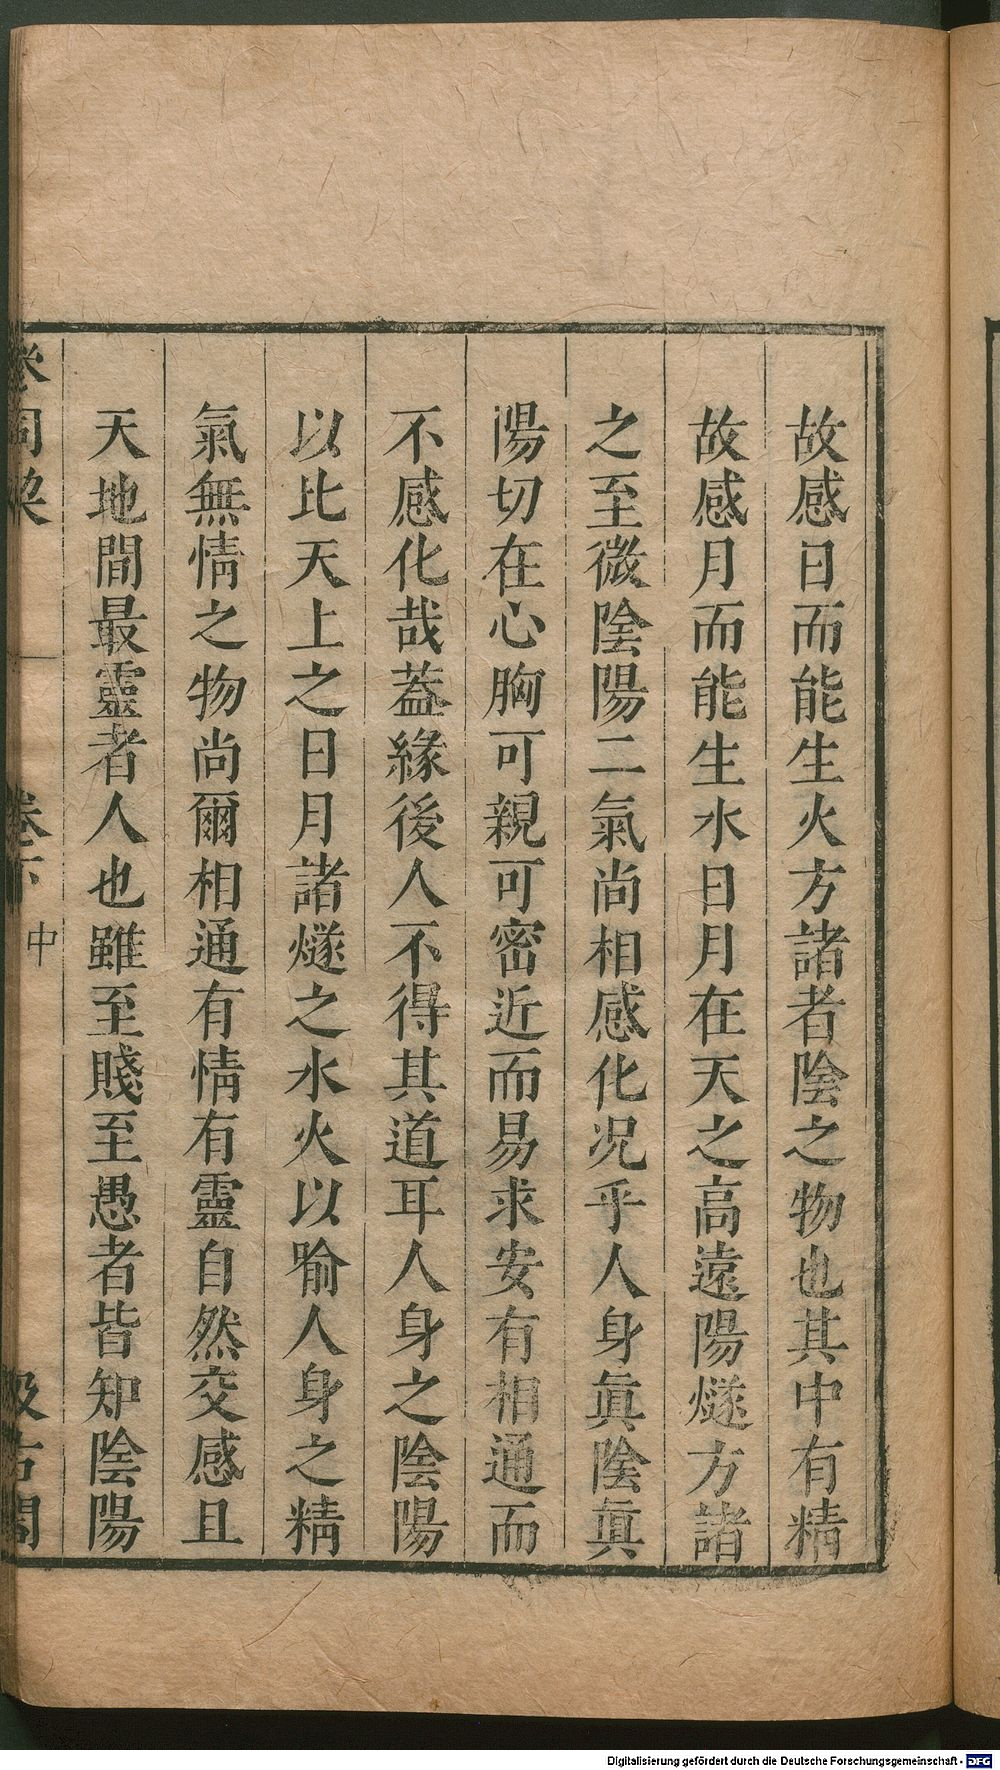 故感日而能生火方諸者陰之物也其中有精
故感月而能生水日月在天之高遠陽燧方諸
之至微陰陽二氣尚相感化况乎人身眞陰眞
陽切在心胸可親可密近而易求安有相通而
不感化哉蓋緣後人不得其道耳人身之陰陽
以比天上之日月諸燧之水火以喻人身之精
氣無情之物尚爾相通有情有靈自然交感且
天地間最靈者人也雖至賤至愚者皆知陰陽
卷下
中
汲古閣
Digitalisierung gefördert durch die Deutsche Forschungsgemeinschaft - DFG